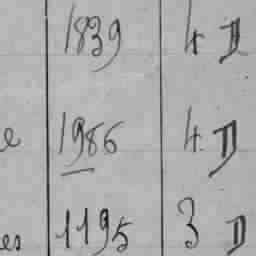 1839 4 D
e 1986 4. D
es 1195 3 D